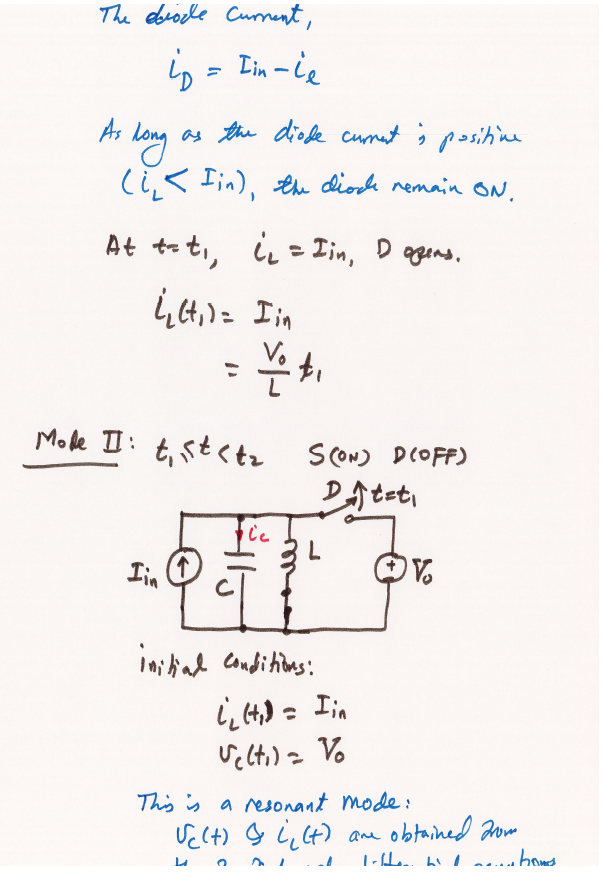 The diode current,
i_D = Iin - i_l
As long as the diode current is positive
(i_L < Iin), the diode remain ON.
At t=t₁, i_L = Iin, D opens.
i_L(t₁) = Iin
= V₀/L t₁
Mode II: t₁ ≤ t < t₂ S(ON) D(OFF)
D t=t₁
i_c
L
Iin
C
+
V₀
initial conditions:
i_L(t₁) = Iin
v_c(t₁) = V₀
This is a resonant mode:
v_c(t) & i_L(t) are obtained from